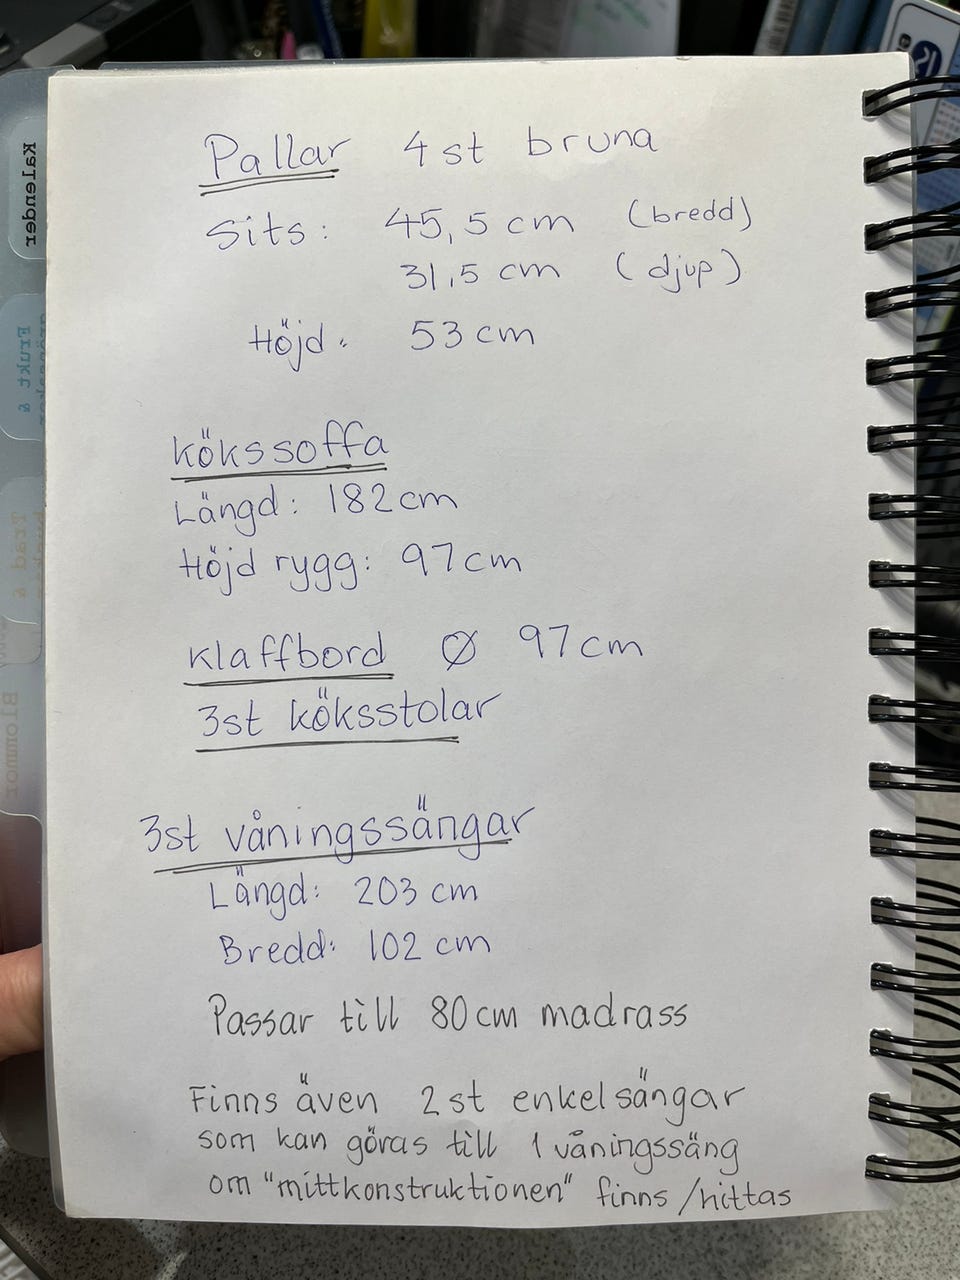 Pallar 4 st bruna
Sits: 45,5 cm (bredd)
31,5 cm (djup)
Höjd: 53 cm
Kökssoffa
Längd: 182 cm
Höjd rygg: 97 cm
Klaffbord Ø 97 cm
3st köksstolar
3st våningssängar
Längd: 203 cm
Bredd: 102 cm
Passar till 80 cm madrass
Finns även 2 st enkelsängar
som kan göras till 1 våningssäng
om "mittkonstruktionen" finns/hittas
Kalender
Frukt &
Träd &
Blommor